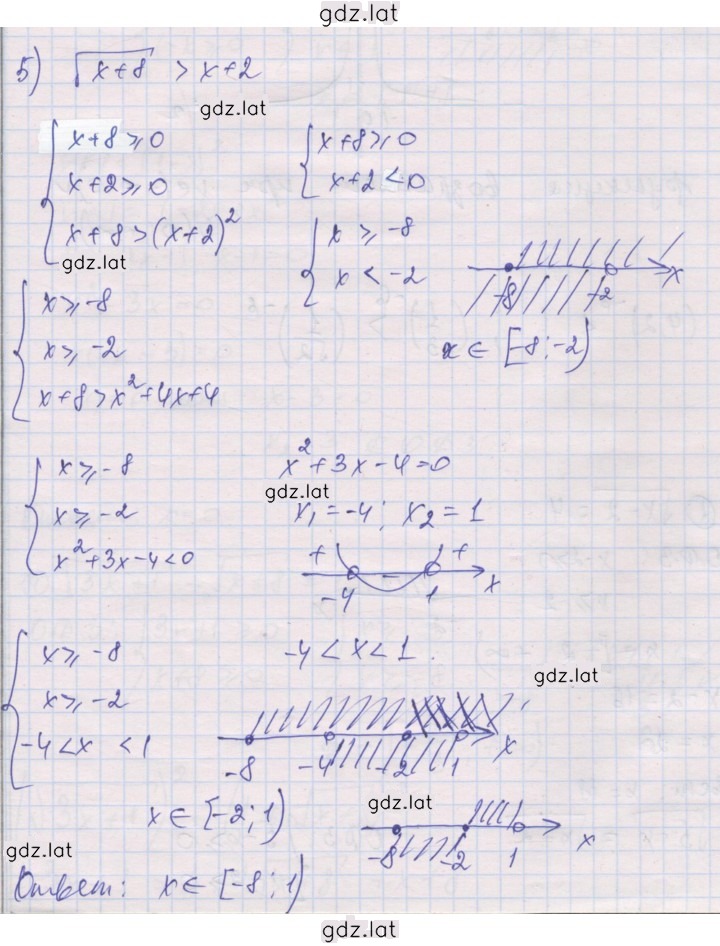 gdz.lat
5) √x+8 > x+2
gdz.lat
{ x+8 ⩾ 0
x+2 ⩾ 0
x+8 > (x+2)²
gdz.lat
{ x+8 ⩾ 0
x+2 < 0
{ x ⩾ -8
x < -2
-8 -2 x
x ∈ [-8; -2)
{ x ⩾ -8
x ⩾ -2
x+8 > x²+4x+4
{ x ⩾ -8
x ⩾ -2
x²+3x-4<0
x²+3x-4=0
gdz.lat
x₁=-4; x₂=1
+ - +
-4 1 x
{ x ⩾ -8
x ⩾ -2
-4<x <1
-4<x<1.
gdz.lat
-8 -4 -2 1 x
x ∈ [-2; 1)
gdz.lat
-8 -2 1 x
gdz.lat
Ответ: x ∈ [-8; 1)
gdz.lat